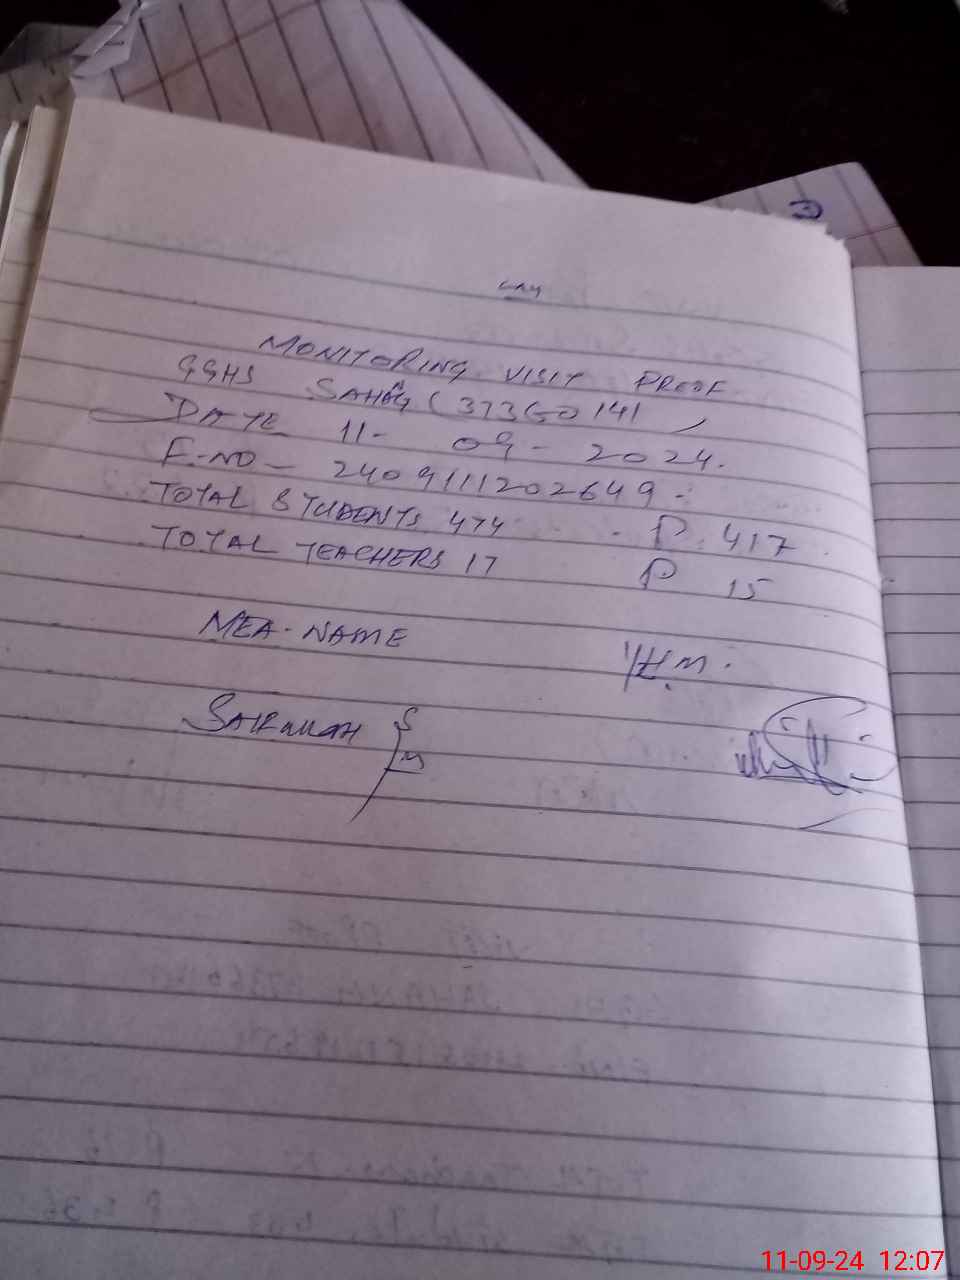 MONITORING VISIT PROOF
GGHS SAHAG (37360141)
DATE 11- 09- 2024.
F.NO- 2409111202649-
TOTAL STUDENTS 474 P 417
TOTAL TEACHERS 17 P 15
MEA-NAME H.M.
11-09-24 12:07